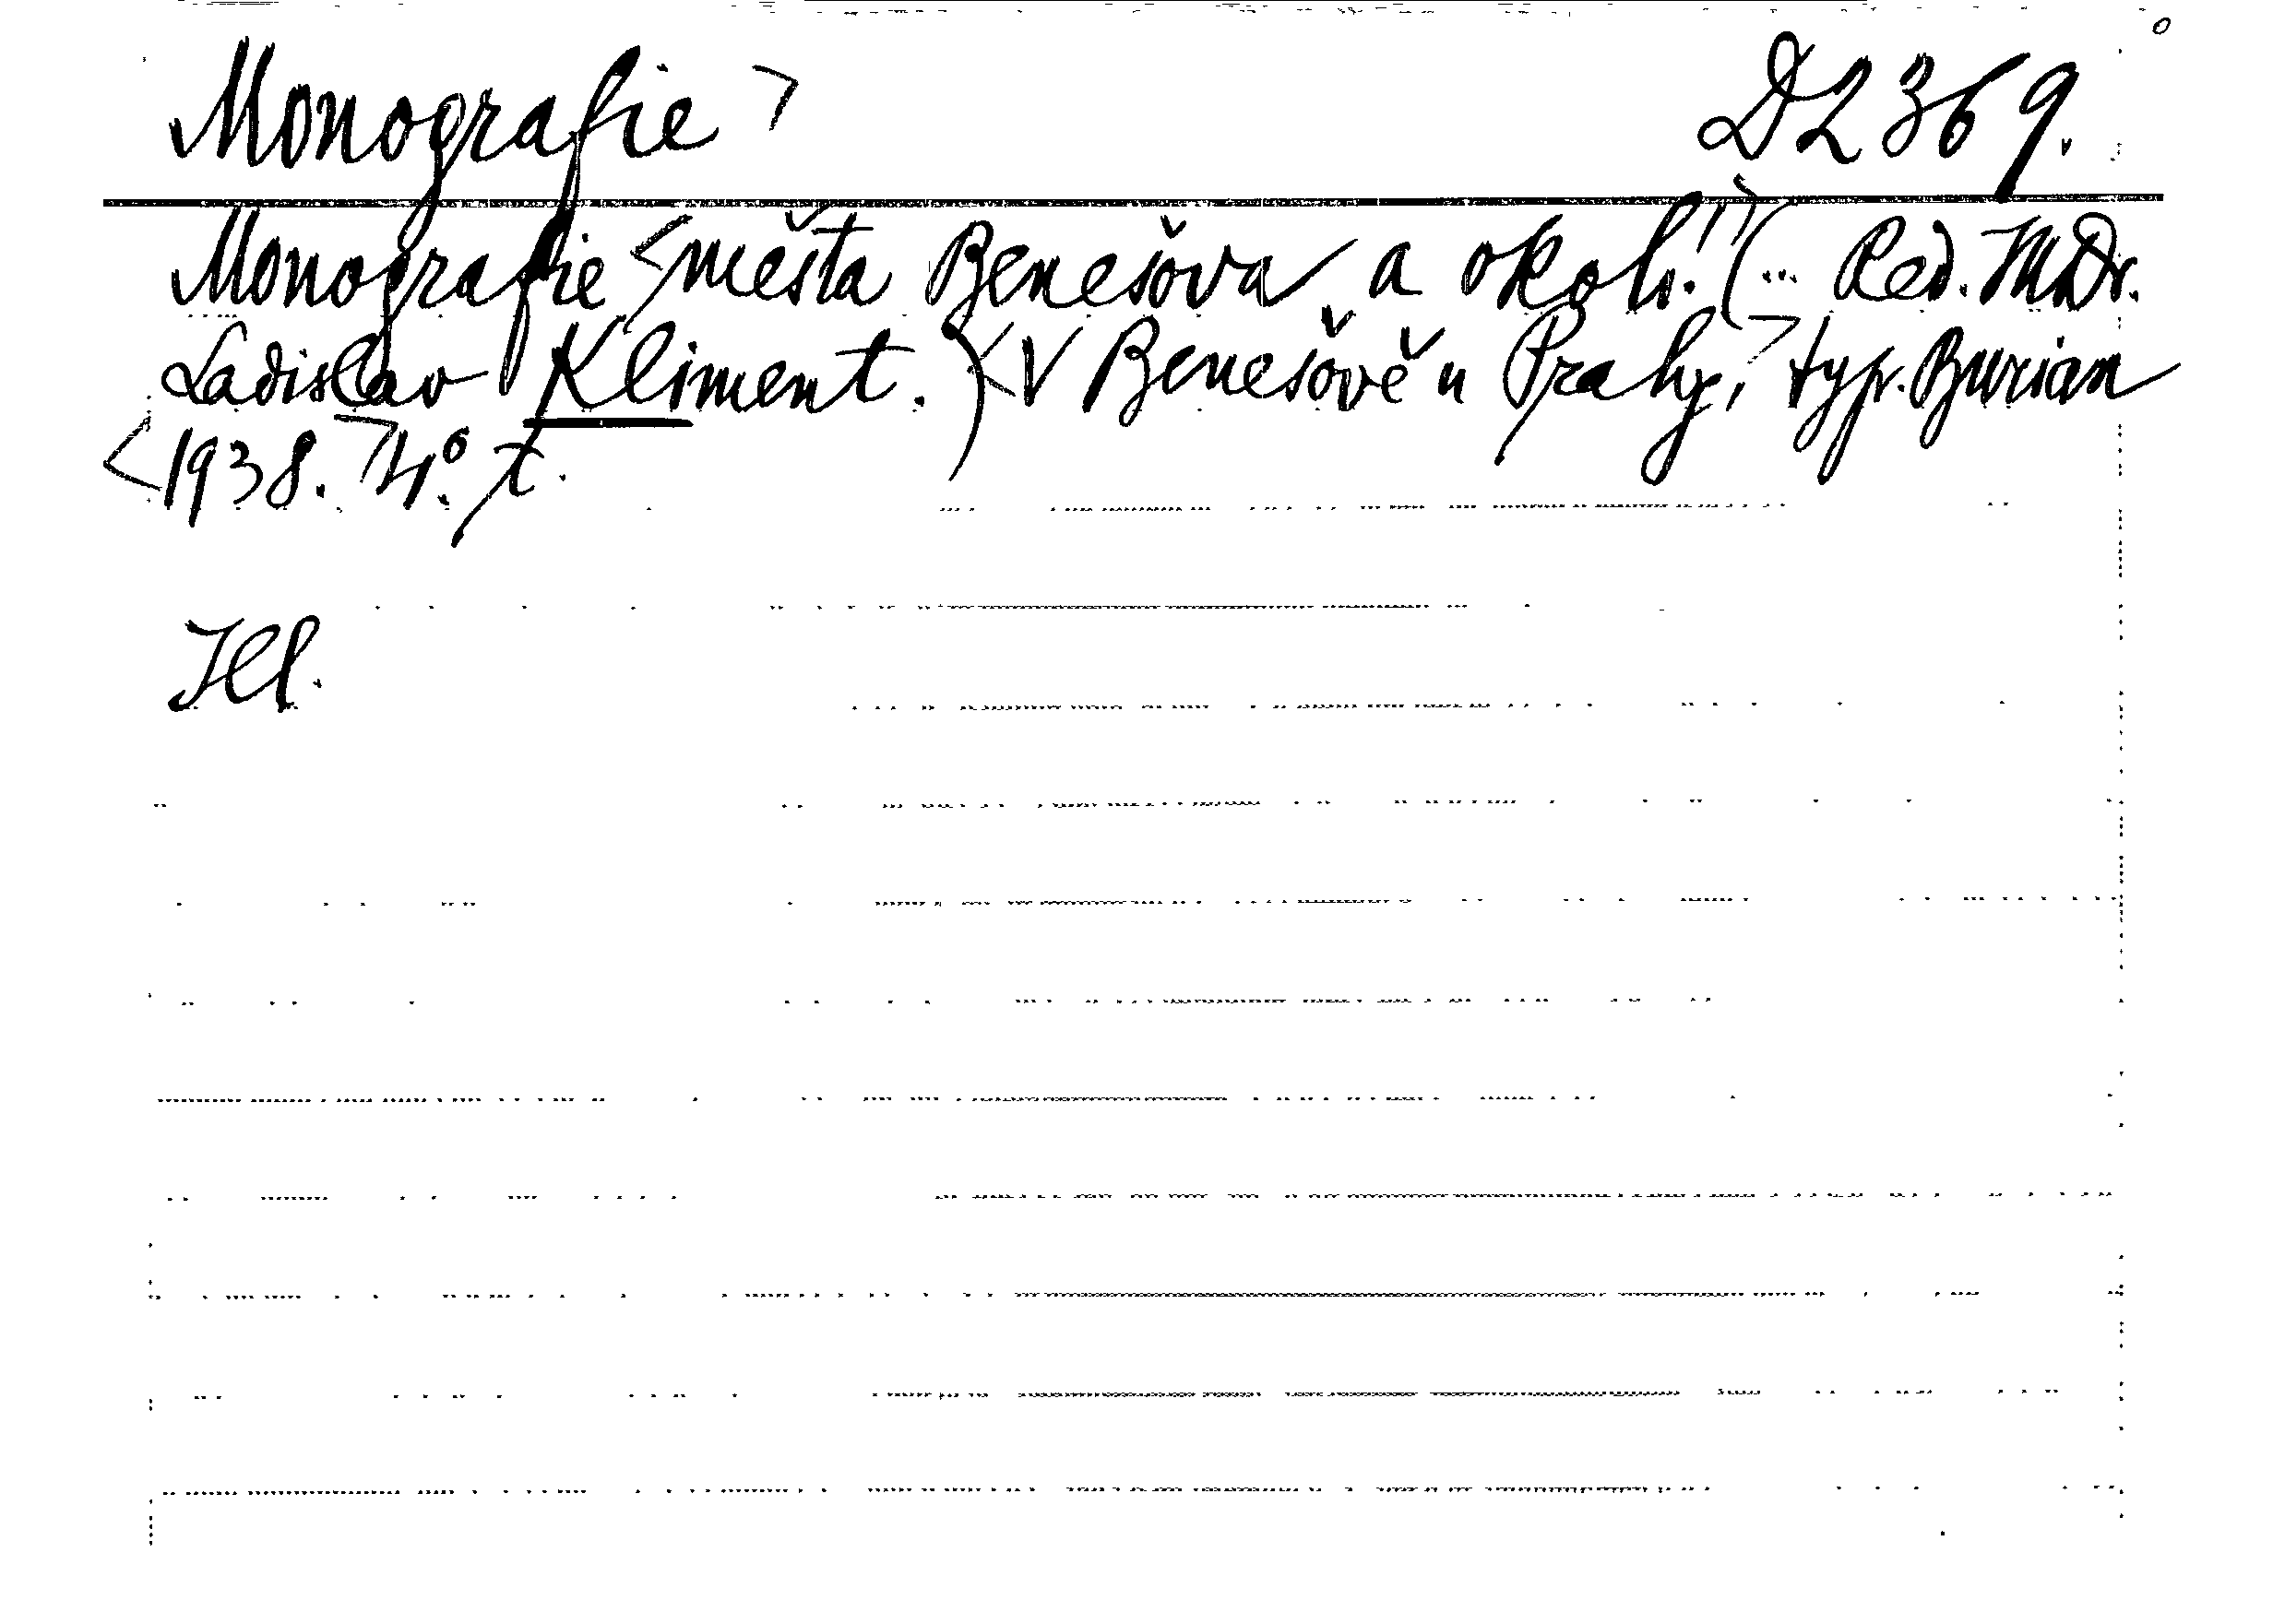 Monografie > D 2369.
Monografie < města Benešova a okolí. (... Red. MDr.
Ladislav Kliment.) < V Benešově u Prahy, > typ. Burian
< 1938. > 4°.
Ill.